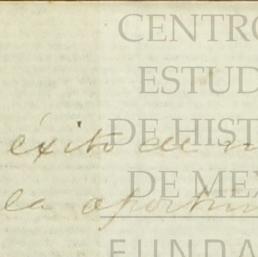 CENTRO
ESTUD
DE HIST
éxito de
DE MEX
la oportun
FUNDA